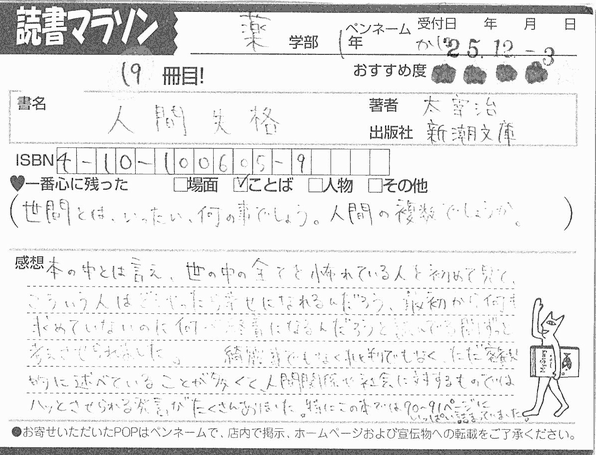 読書マラソン
薬 学部 ( 年 ペンネーム 受付日 年 月 日
25.12.-3
19 冊目! おすすめ度
書名 人間失格 著者 太宰治
出版社 新潮文庫
ISBN 4-10-100605-9
♥一番心に残った □場面 ☑ことば □人物 □その他
(世間とは、いったい、何の事でしょう。人間の複数でしょうか。)
感想 本の中とは言え、世の中の全てを怖れている人を初めて見て、
こういう人はどうやったら幸せになれるんだろう、最初から何も
求めていないのに何 事になるんだろうと読んでいる間ずっと
考えさせられました。 綺麗事でもなく批判でもなく、ただ客観
的に述べていることが多くて、人間関係や社会に対するものでは
ハッとさせられる発言がたくさんありました。特にこの本では90-91ページに
いっぱい詰まっていました。
●お寄せいただいたPOPはペンネームで、店内で掲示、ホームページおよび宣伝物への転載をご了承ください。